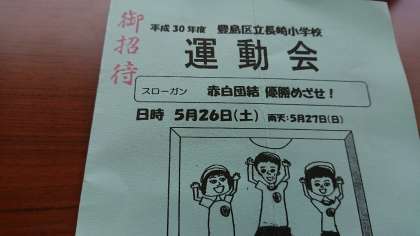 御招待
平成30年度 豊島区立長崎小学校
運動会
スローガン 赤白団結 優勝めざせ！
日時 5月26日(土) 雨天:5月27日(日)